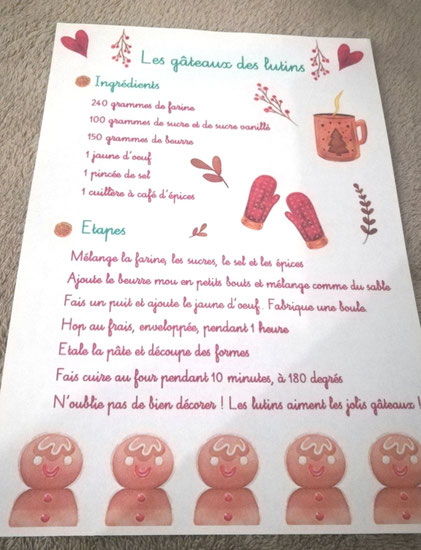 Les gâteaux des lutins
Ingrédients
240 grammes de farine
100 grammes de sucre et de sucre vanillé
150 grammes de beurre
1 jaune d'oeuf
1 pincée de sel
1 cuillère à café d'épices
Etapes
Mélange la farine, les sucres, le sel et les épices
Ajoute le beurre mou en petits bouts et mélange comme du sable
Fais un puit et ajoute le jaune d'oeuf. Fabrique une boule.
Hop au frais, enveloppée, pendant 1 heure
Etale la pâte et découpe des formes
Fais cuire au four pendant 10 minutes, à 180 degrés
N'oublie pas de bien décorer ! Les lutins aiment les jolis gâteaux !